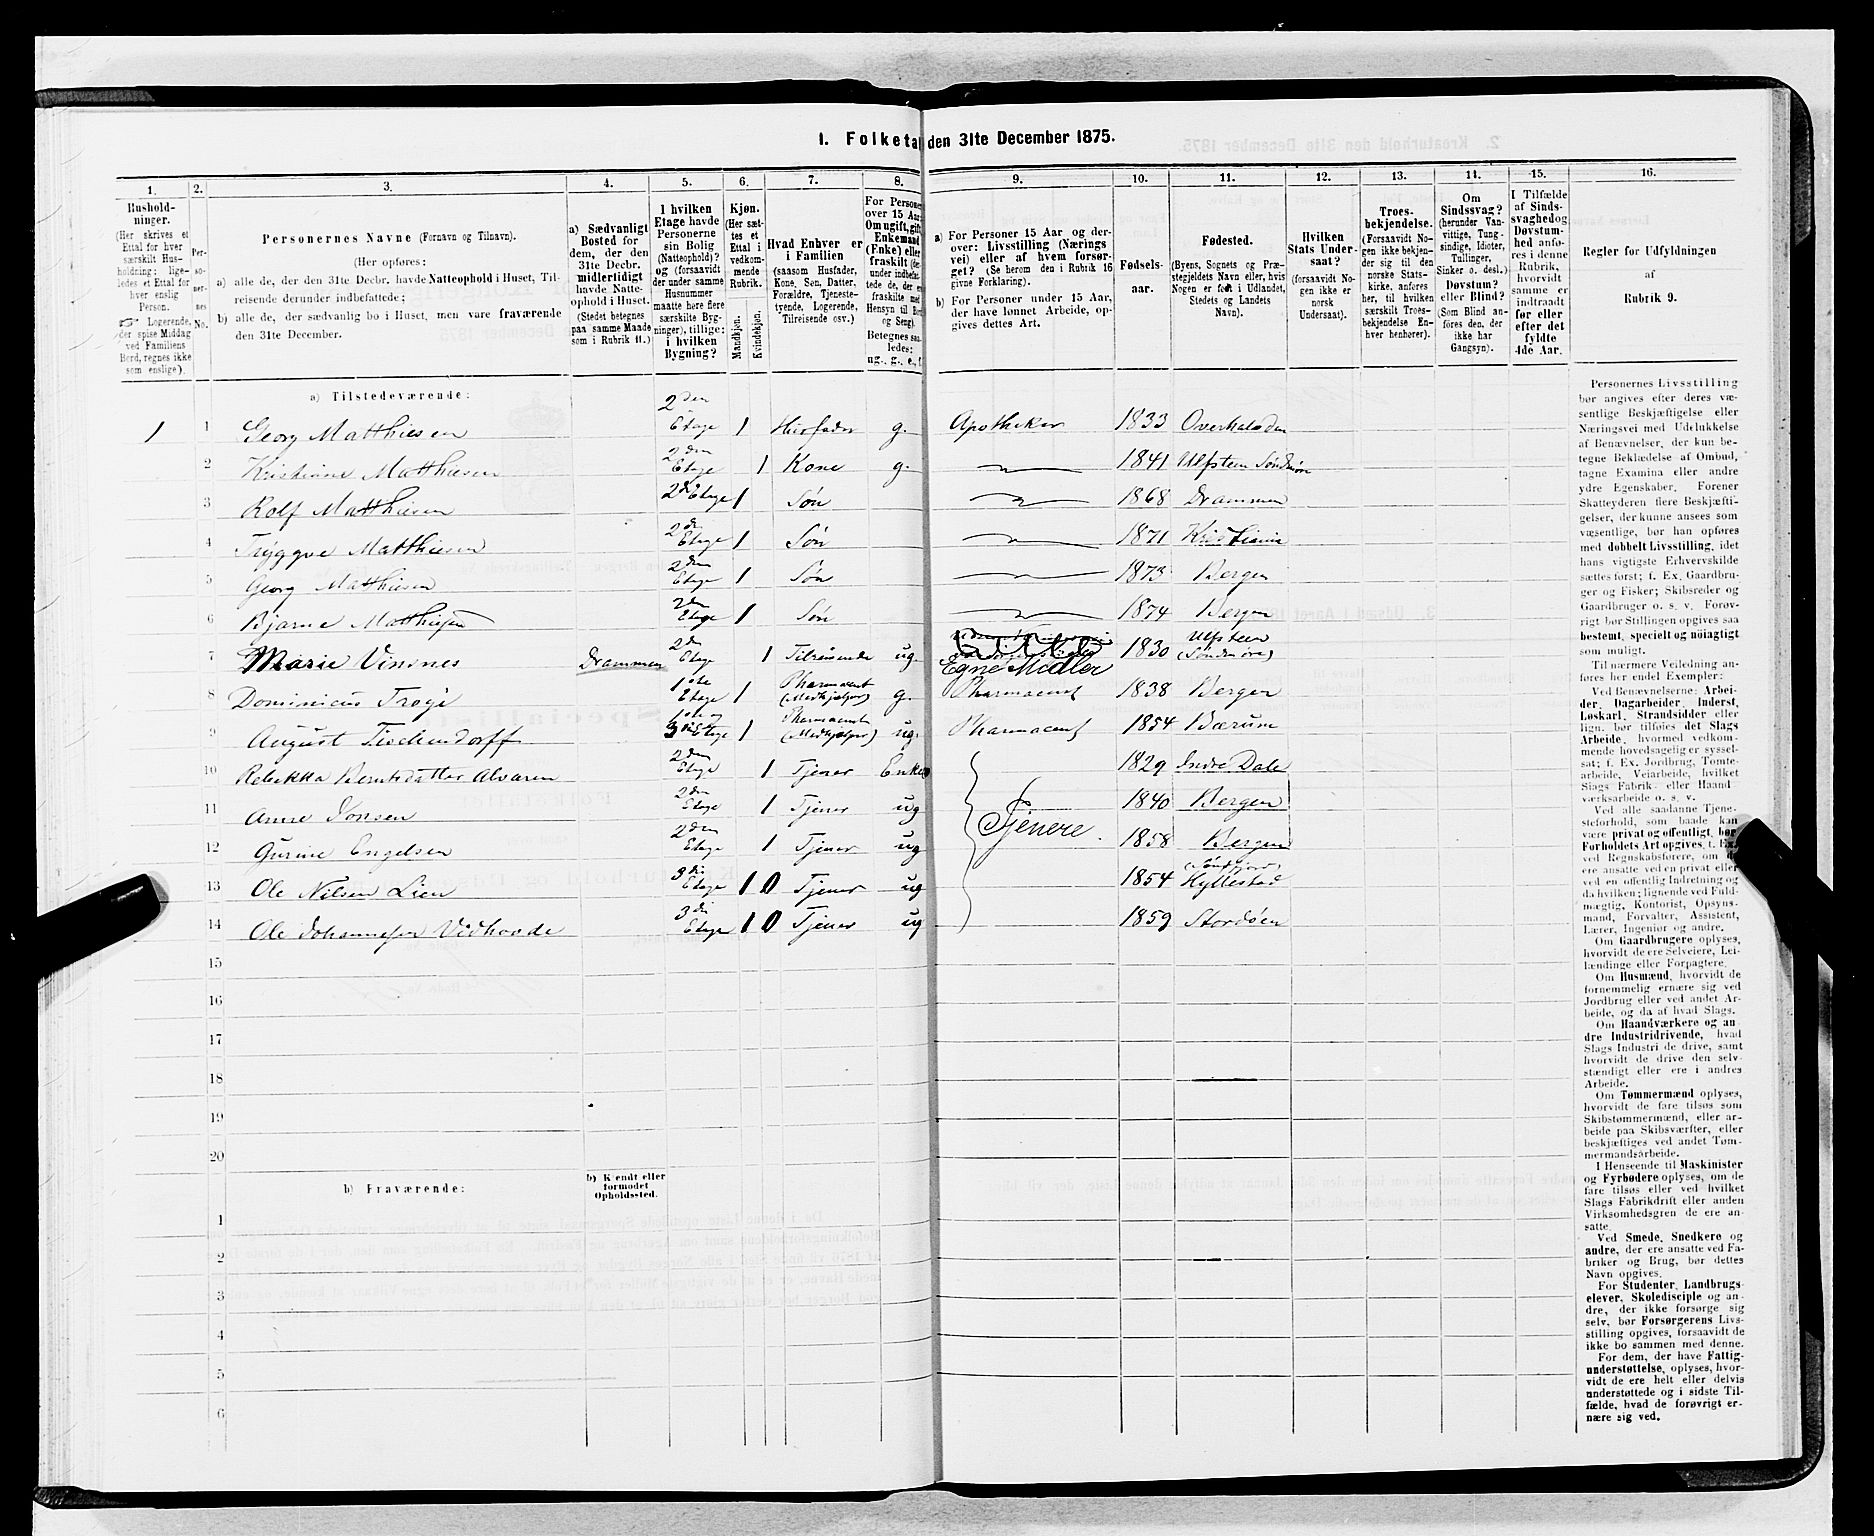 1. Folketa den 31te December 1875.
1. 2. 3. 4. 5. 6. 7. 8. 9. 10. 11. 12. 13. 14. 15. 16.
Husholdninger.
(Her skrives et
Ettal for hver
særskilt Hus-
holdning; lige-
ledes et Ettal for
hver enslig
Person.
☞ Logerende,
der spise Middag
ved Familiens
Bord, regnes ikke
som enslige).
Per-
so-
ner-
nes
No.
Personernes Navne (Fornavn og Tilnavn).
(Her opføres:
a) alle de, der den 31te Decbr. havde Natteophold i Huset, Til-
reisende derunder indbefattede;
b) alle de, der sædvanlig bo i Huset, men vare fraværende
den 31te December.
a) Sædvanligt
Bosted for
dem, der den
31te Decbr.
midlertidigt
havde Natte-
ophold i Huset.
(Stedet betegnes
paa samme Maade
som i Rubrik 11.)
I hvilken
Etage havde
Personerne
sin Bolig
(Natteophold)?
og (forsaavidt
der under samme
Husnummer
maatte høre flere
særskilte Byg-
ninger), tillige:
i hvilken
Bygning?
Kjøn.
(Her sæt-
tes et
Ettal i
vedkom-
mende
Rubrik.
Mandkjøn.
Kvindekjøn.
Hvad Enhver er
i Familien
(saasom Husfader,
Kone, Søn, Datter,
Forældre, Tjeneste-
tyende, Logerende,
Tilreisende osv.)
For Persone
over 15 Aar
Om ugift, gift,
Enkemand
(Enke) eller
fraskilt (der-
under indbefat-
tede de, der er
fraskilte med
Hensyn til Bor
og Seng).
Betegnes saa-
ledes:
ug., g., e., f.
a) For Personer 15 Aar og der-
over: Livsstilling (Nærings
vei) eller af hvem forsør-
get? (Se herom den i Rubrik 16
givne Forklaring).
b) For Personer under 15 Aar,
der have lønnet Arbeide, op-
gives dettes Art.
Fødsels-
aar.
Fødested.
(Byens, Sognets og Præ-
stegjeldets Navn eller, hvis
Nogen er født i Udlandet,
Stedets og Landets
Navn).
Hvilken
Stats Under-
saat?
(forsaavidt No-
gen ikke er
norsk
Undersaat).
Troes-
bekjendelse.
(Forsaavidt No-
gen ikke bekjen-
der sig til den
norske Stats-
kirke, anføres
her, til hvilken
særskilt Troes-
bekjendelse En-
hver henhører).
Om
Sindssvag?
(herunder Van-
vittige, Tung-
sindige, Idioter,
Tullinger,
Sinker o. desl.)
Døvstum?
eller Blind?
(Som Blind an-
føres den, der
ikke har
Gangsyn).
I Tilfælde
af Sinds-
svaghedog
Døvstum-
hed anfø-
res i denne
Rubrik,
hvorvidt
samme er
indtraadt
før eller
efter det
fyldte
4de Aar.
Regler for Udfyldningen
af
Rubrik 9.
a) Tilstedeværende:
1 1 Georg Matthiesen 2den Etage 1 Husfader g. Apotheker 1833 Overhalsden
2 Kristiane Matthiesen 2den Etage 1 Kone g. 1841 Ulfsteen Søndmør
3 Rolf Matthiesen 2d Etage 1 Søn 1868 Drammen
4 Tryggve Matthiesen 2den Etage 1 Søn 1871 Kristiania
5 Georg Matthiesen 2den Etage 1 Søn 1873 Bergen
6 Bjarne Matthiesen 2den Etage 1 Søn 1874 Bergen
7 Marie Vinsnes Drammen 2den Etage 1 Tilreisende ug. Egne Midler 1830 Ulfsteen (Søndmøre)
8 Dominicus Troye 1ste Etage 1 Pharmaceut (Medhjælper) g. Pharmaceut 1838 Bergen
9 August Tischendorff 1ste og 3die Etage 1 Pharmaceut (Medhjælper) ug. Pharmaceut 1854 Bærum
10 Rebekka Berntsdatter Alvaren 2den Etage 1 Tjener Enke 1829 Indre Dale
11 Anne Jonsen 2den Etage 1 Tjener ug 1840 Bergen
Tjenere.
12 Gurine Engelsen 2den Etage 1 Tjener ug 1858 Bergen
13 Ole Nilsen Lien 3die Etage 1 0 Tjener ug 1854 (Søndfjor) Hyllestad
14 Ole Johannesen Vidhovde 3di Etage 1 0 Tjener ug 1859 Stordøen
15
16
17
18
19
20
b) Fraværende:
b) Kjendt eller
formodet
Opholdssted.
1
2
3
4
5
6
Personernes Livsstilling
bør angives efter deres væ-
sentlige Beskjæftigelse eller
Næringsvei med Udelukkelse
af Benævnelser, der kun be-
tegne Beklædelse af Ombud,
tagne Examina eller andre
ydre Egenskaber. Forener
Skatteyderen flere Beskjæfti-
gelser, der kunne ansees som
væsentlige, bør han opføres
med dobbelt Livsstilling, idet
hans vigtigste Erhvervskilde
sættes først; f. Ex. Gaardbru-
ger og Fisker; Skibsreder og
Gaardbruger o. s. v. Forøv-
rigt bør Stillingen opgives saa
bestemt, specielt og nøiagtigt
som muligt.
Til nærmere Veiledning an-
føres her endel Exempler:
Ved Benævnelserne: Arbei-
der, Dagarbeider, Inderst,
Løskarl, Strandsidder eller
lign. bør tilføies det Slags
Arbeide, hvormed vedkom-
mende hovedsagelig er syssel-
sat; f. Ex. Jordbrug, Tømte-
arbeide, Veiarbeide, hvilket
Slags Fabrik- eller Haand-
værksarbeide o. s. v.
Ved alle saadanne Tjene-
steforhold, som baade kan
være privat og offentligt, bør
Forholdets Art opgives, t. Ex.
ved Regnskabsførere, om de
ere ansatte ved en privat eller
ved en offentlig Indretning og
da hvilken; lignende ved Fuld-
mægtig, Kontorist, Opsyns-
mand, Forvalter, Assistent,
Lærer, Ingeniør og andre.
Om Gaardbrugere oplyses,
hvorvidt de ere Selveiere, Lei-
lændinge eller Forpagtere.
Om Husmænd, hvorvidt de
fornemmelig ernære sig ved
Jordbrug eller ved andet Ar-
beide, og da af hvad Slags.
Om Haandværkere og an-
dre Industridrivende, hvad
Slags Industri de drive, samt
hvorvidt de drive den selv-
stændigt eller ere i andres
Arbeide.
Om Tømmermænd oplyses,
hvorvidt de fare tilsøs som
Skibstømmermænd, eller ar-
beide paa Skibsværfter, eller
beskjæftiges ved andet Tøm-
mermandsarbeide.
I Henseende til Maskinister
og Fyrbødere oplyses, om de
fare tilsøs eller ved hvilket
Slags Fabrikdrift eller anden
Virksomhedsgren de ere an-
satte.
Ved Smede, Snedkere og
andre, der ere ansatte ved Fa-
briker og Brug, bør dettes
Navn opgives.
For Studenter, Landbrugs-
elever, Skoledisciple og an-
dre, der ikke forsørge sig
selv, bør Forsørgerens Livs-
stilling opgives, forsaavidt de
ikke bo sammen med denne.
For dem, der have Fattig-
understøttelse, oplyses, hvor-
vidt de ere helt eller delvis
understøttede og i sidste Til-
fælde, hvad de forøvrigt er-
nære sig ved.